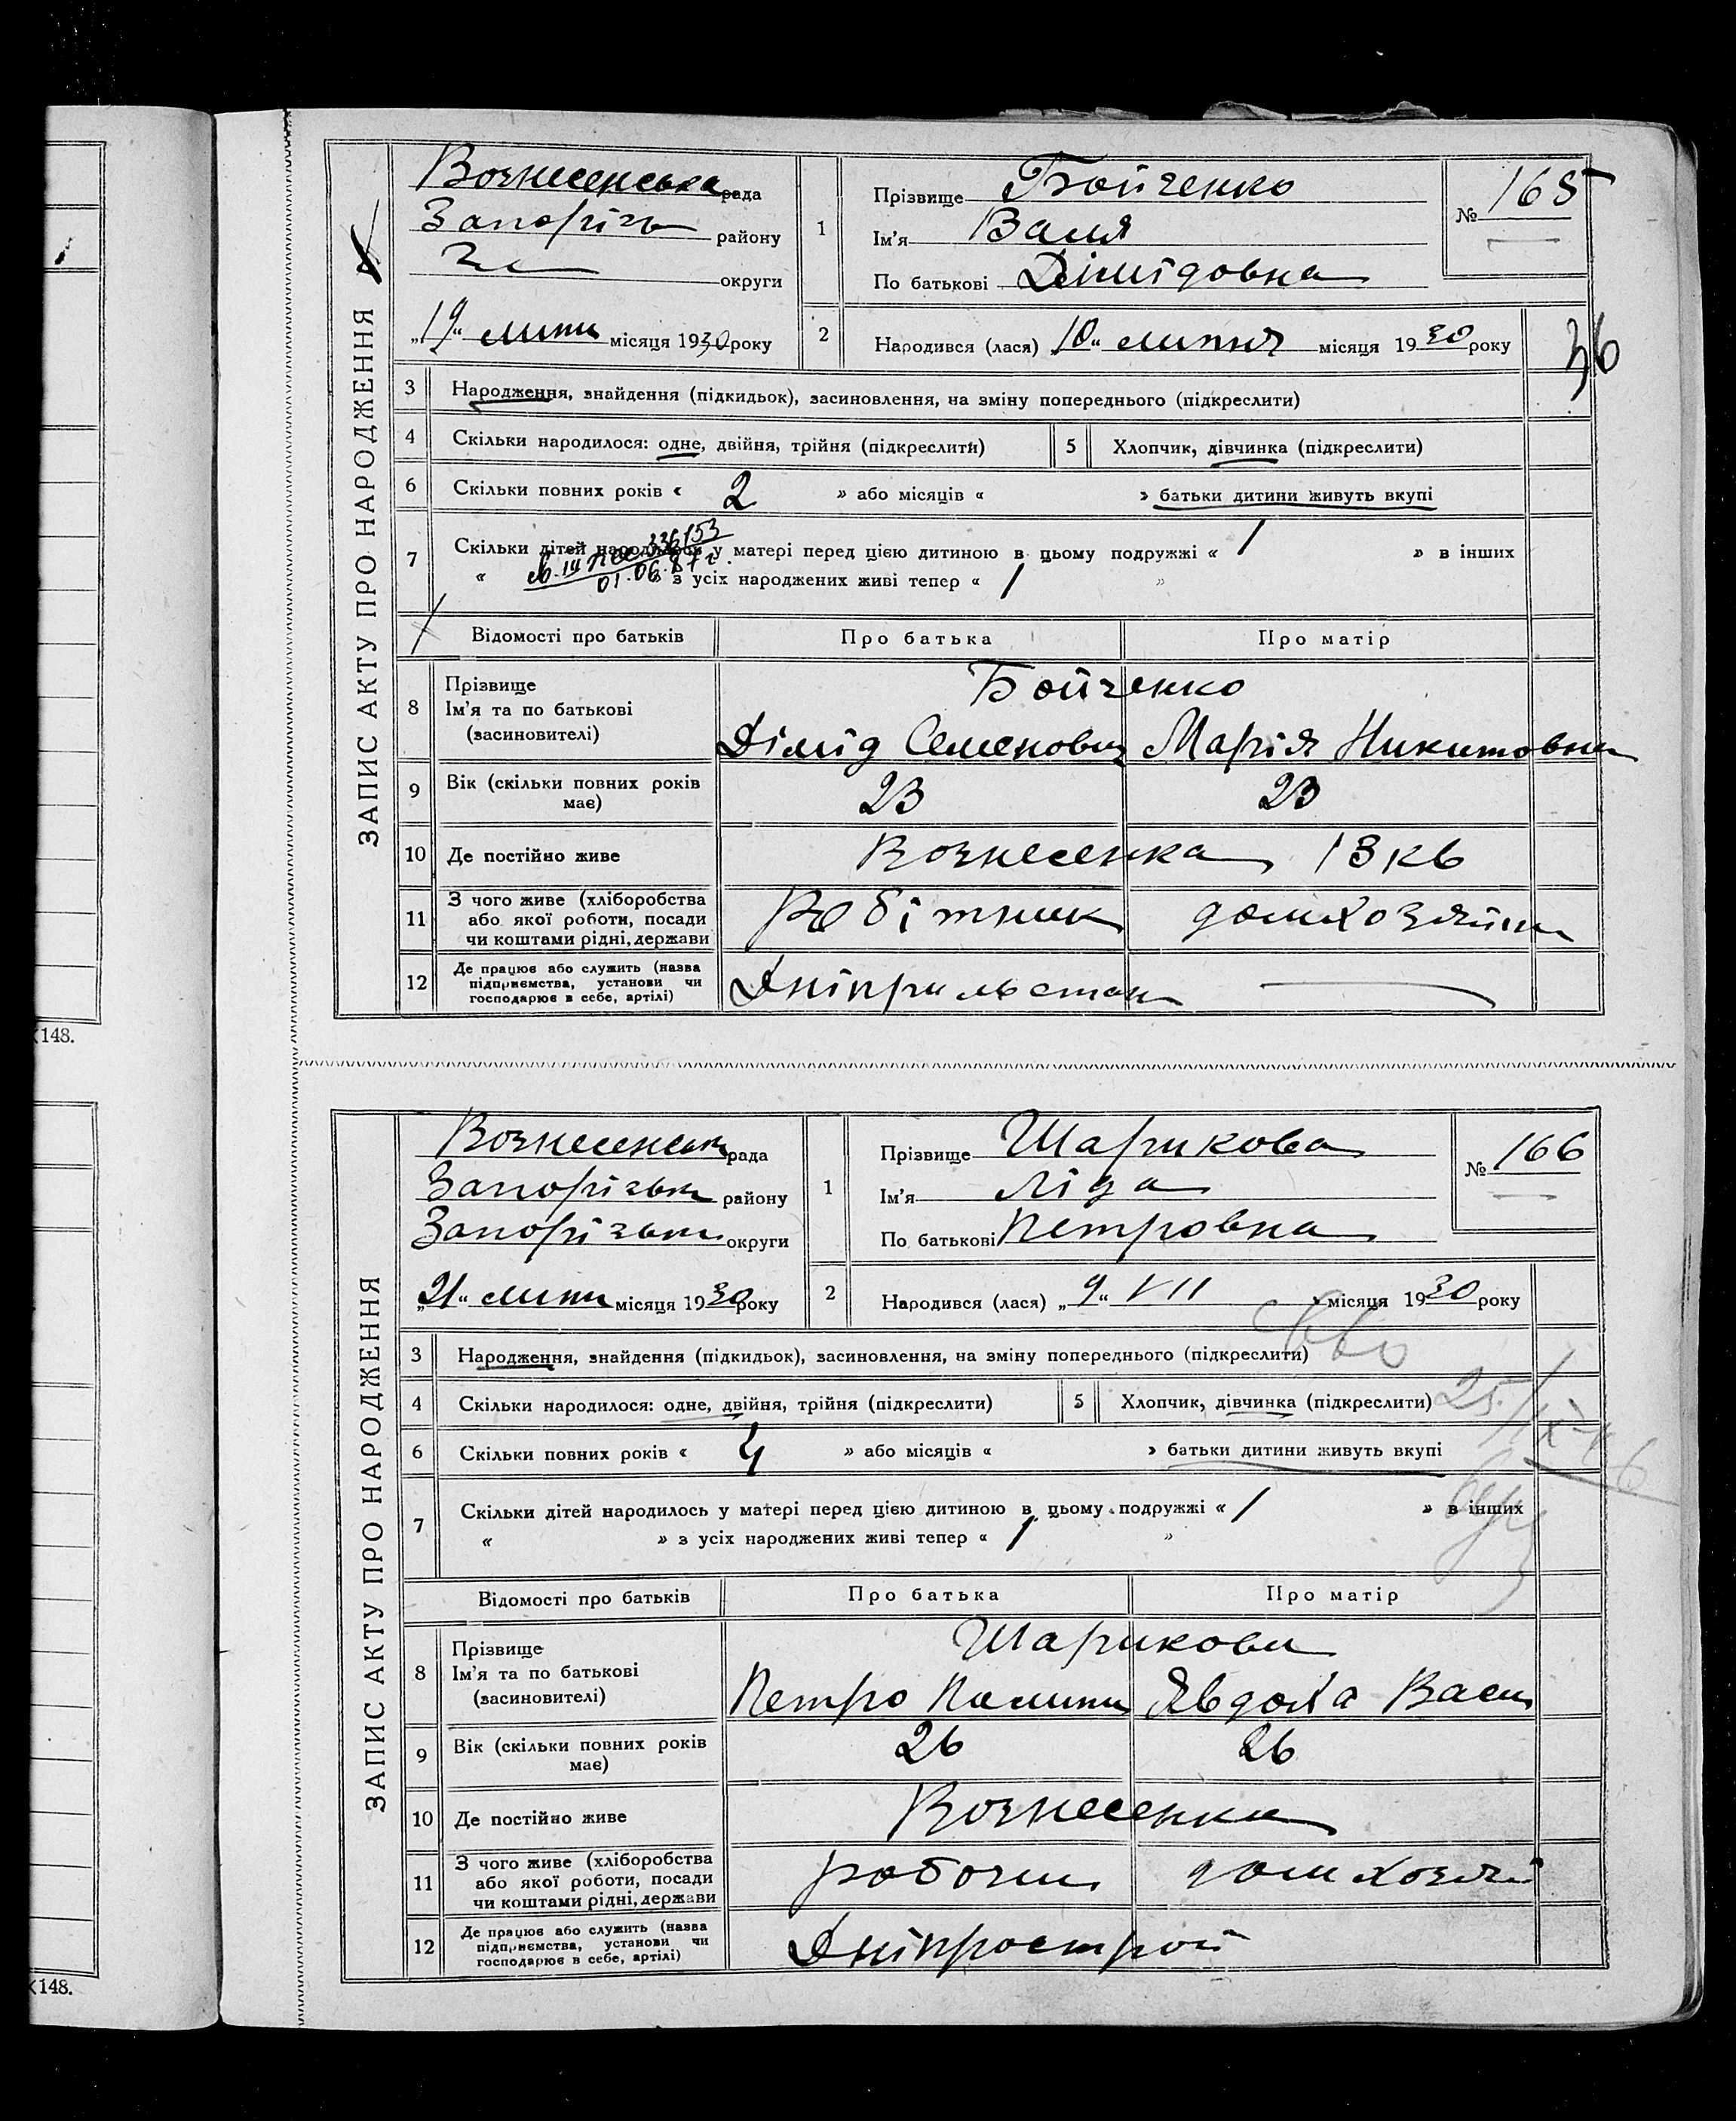 ЗАПИС АКТУ ПРО НАРОДЖЕННЯ
Вознесенська рада
Запорізь району
округи
„19“ липн місяця 1930 року
1
Прізвище Бойченко
Ім'я Валя
По батькові Дімідовна
№ 165
2
Народився (лася) „10“ липня місяця 1930 року
36
3 Народження, знайдення (підкидьок), засиновлення, на зміну попереднього (підкреслити)
4 Скільки народилося: одне, двійня, трійня (підкреслити)
5 Хлопчик, дівчинка (підкреслити)
6 Скільки повних років « 2 » або місяців « » батьки дитини живуть вкупі
7 Скільки дітей народилось у матері перед цією дитиною в цьому подружжі « 1 » в інших
« » з усіх народжених живі тепер « 1 »
336153
01.06.87г.
Відомості про батьків Про батька Про матір
8 Прізвище
Ім'я та по батькові
(засиновителі)
Бойченко
Дімід Семенович Марія Никитовна
9 Вік (скільки повних років має) 23 23
10 Де постійно живе Вознесенка 13 кв
11 З чого живе (хліборобства
або якої роботи, посади
чи коштами рідні, держави
Робітник домхозяйка
12 Де працює або служить (назва
підприємства, установи чи
господарює в себе, артілі)
148.
ЗАПИС АКТУ ПРО НАРОДЖЕННЯ
Вознесенськ рада
Запорізьк району
Запорізьк округи
„21“ липн місяця 1930 року
1
Прізвище Шарикова
Ім'я Ліда
По батькові Петровна
№ 166
2
Народився (лася) „9“ VII місяця 1930 року
3 Народження, знайдення (підкидьок), засиновлення, на зміну попереднього (підкреслити)
4 Скільки народилося: одне, двійня, трійня (підкреслити)
5 Хлопчик, дівчинка (підкреслити)
25/IX-46
6 Скільки повних років « 4 » або місяців « » батьки дитини живуть вкупі
7 Скільки дітей народилось у матері перед цією дитиною в цьому подружжі « 1 » в інших
« » з усіх народжених живі тепер « 1 »
Відомості про батьків Про батька Про матір
8 Прізвище
Ім'я та по батькові
(засиновителі)
Шарикови
Петро Явдоха Васи
9 Вік (скільки повних років має) 26 26
10 Де постійно живе Вознесенка
11 З чого живе (хліборобства
або якої роботи, посади
чи коштами рідні, держави
робочий домхозяй
12 Де працює або служить (назва
підприємства, установи чи
господарює в себе, артілі)
Дніпрострой
148.